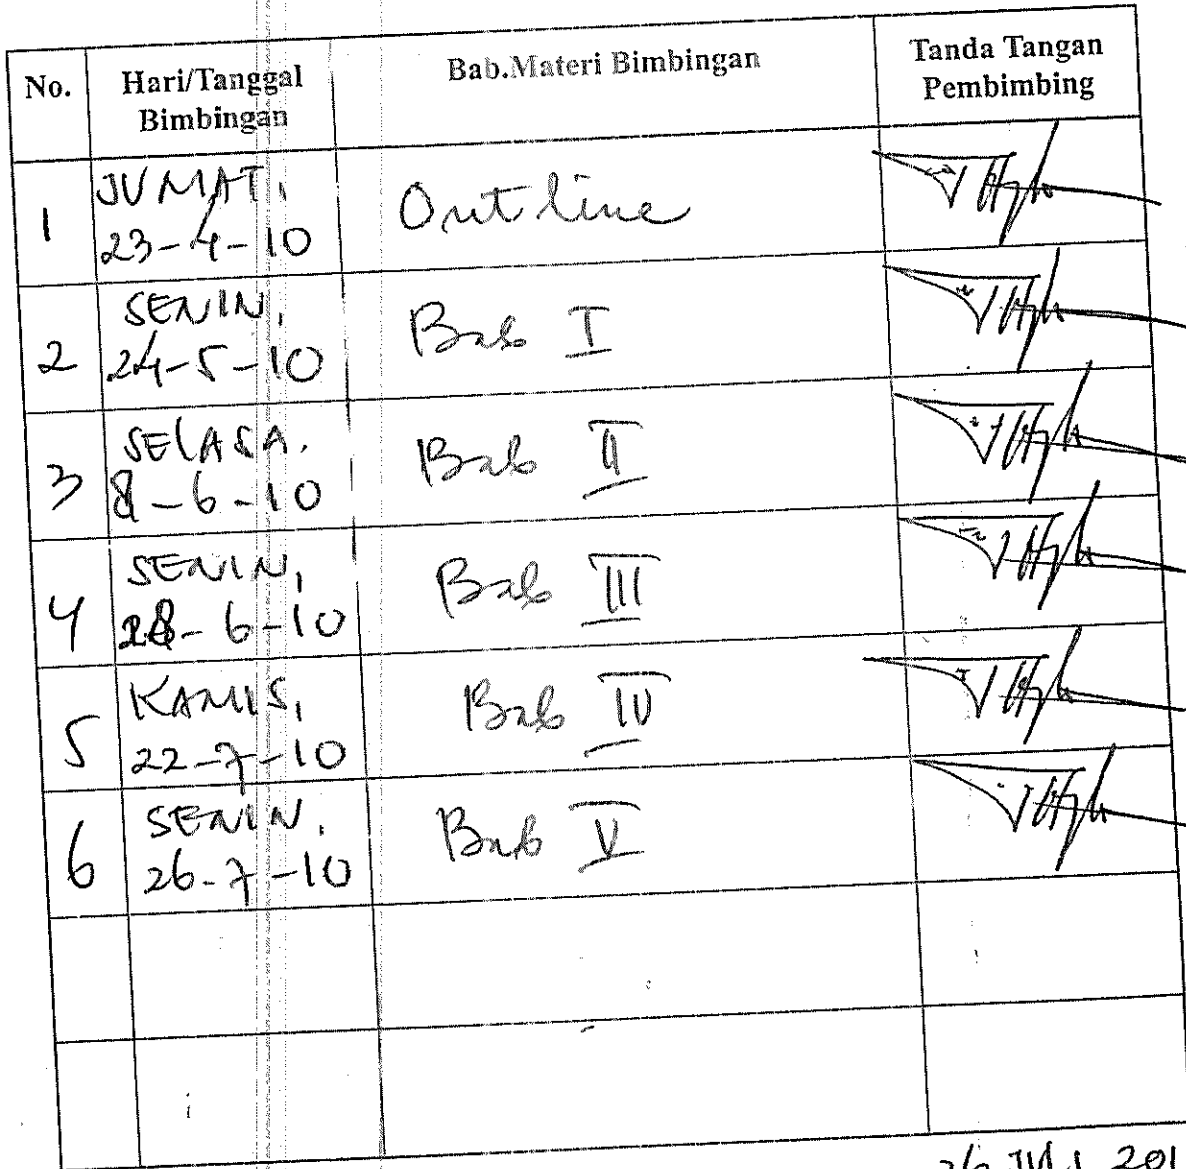 No.
Hari/Tanggal
Bimbingan
Bab.Materi Bimbingan
Tanda Tangan
Pembimbing
1
JUMAT,
23-4-10
Outline
2
SENIN,
24-5-10
Bab I
3
SELASA.
8-6-10
Bab II
4
SENIN,
28-6-10
Bab III
5
KAMIS,
22-7-10
Bab IV
6
SENIN.
26-7-10
Bab V
26 JULI 201